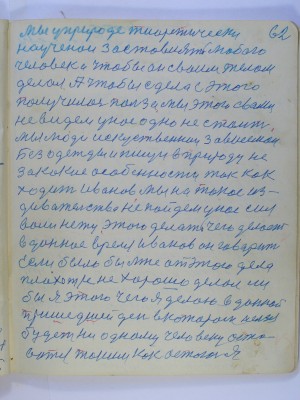 62
Мы у природе тиоретически
научоном заставлят любого
человека чтобы он своим телом
делол А чтобы сделат этого
получилос пользы мы этого сваим
не видем у нас одно не стоит
мы люди искуственном зависемом
без одежды и пищи в природу не
за какие особености так как
ходит Иванов мы на такое из-
девателство не пойдем у нас сил
воли нету этого делат чего делоит
в данное время Иванов он говорит
если было бы мне от этого дела
плохо не хорошо делол ли
бы я этого чего я делою в данной
пришедший ден в котором нелзя
будет ни одному человеку оста-
ватся таким как остолся Я